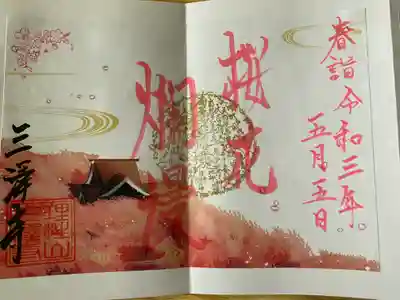 春詣 令和三年
五月五日
桜花
爛漫
三澤寺